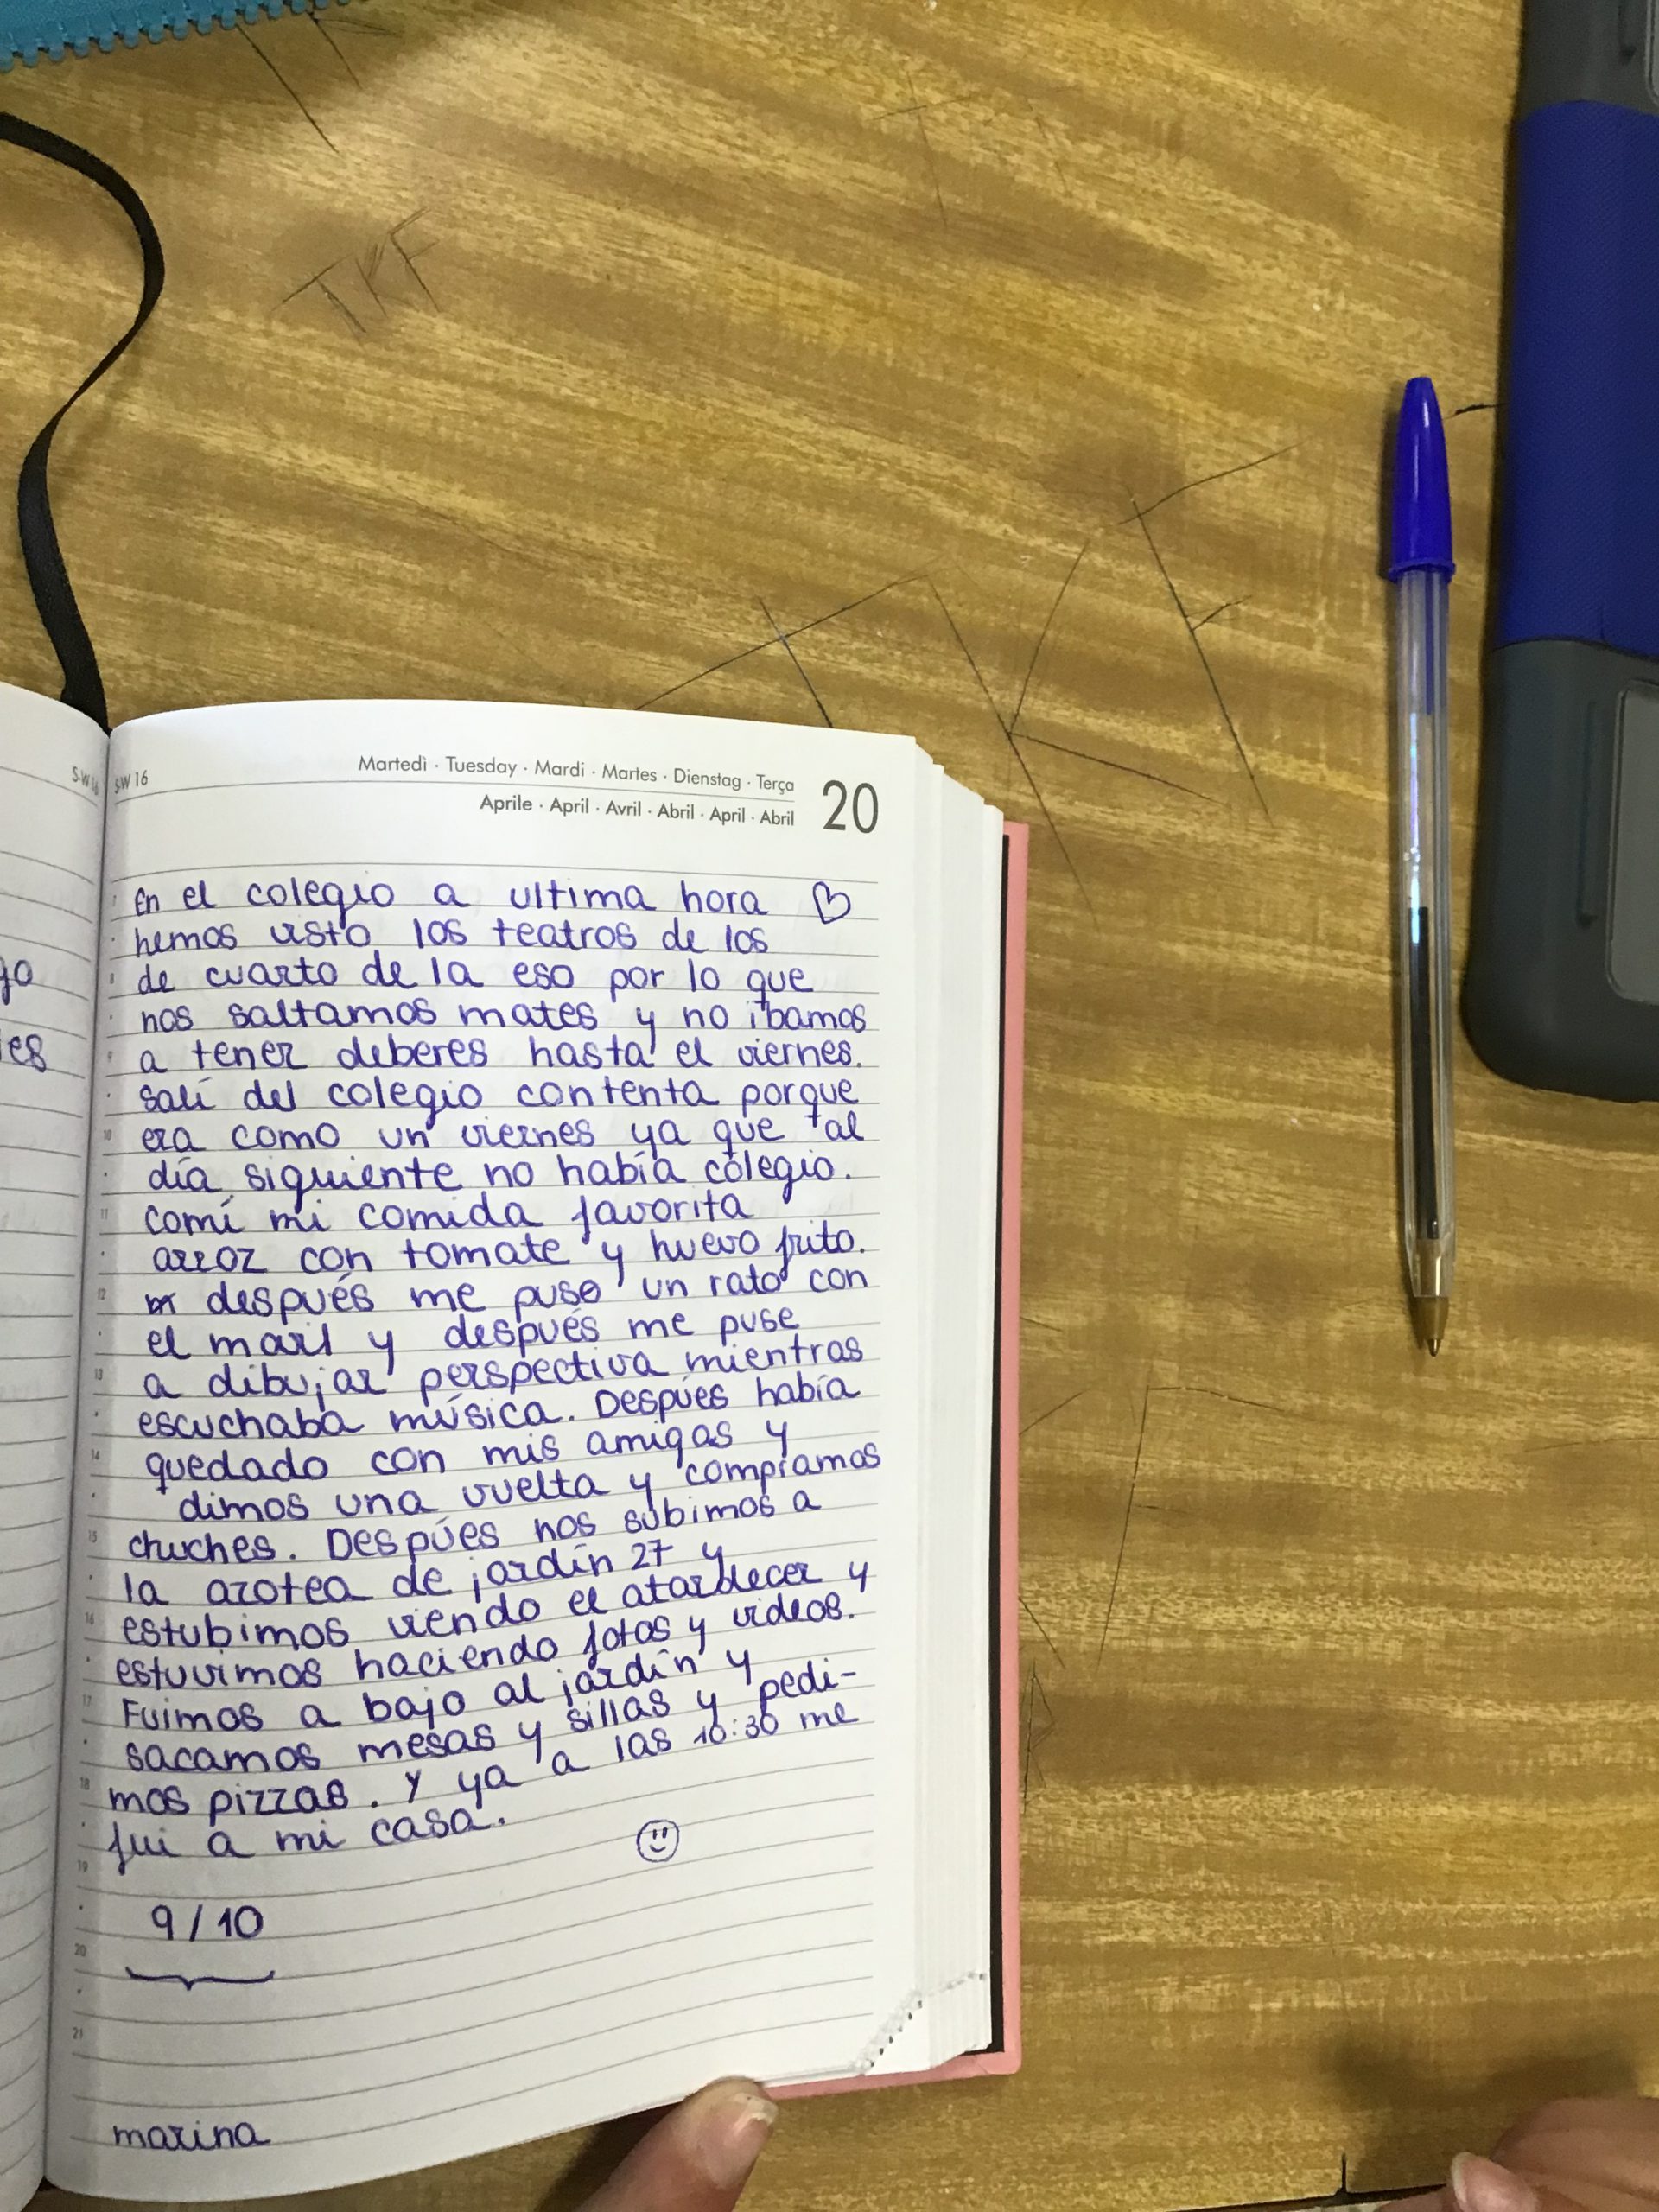 TKF
TKF
go
es
S-W 16
S-W 16
Martedì · Tuesday · Mardi · Martes · Dienstag · Terça
Aprile · April · Avril · Abril · April · Abril
20
En el colegio a ultima hora
hemos visto los teatros de los
de cuarto de la eso por lo que
nos saltamos mates y no ibamos
a tener deberes hasta el viernes.
salí del colegio contenta porque
era como un viernes ya que al
día siguiente no había colegio.
comí mi comida favorita
arroz con tomate y huevo frito.
después me puse un rato con
el mavil y después me puse
a dibujar perspectiva mientras
escuchaba música. Despúes había
quedado con mis amigas y
dimos una vuelta y compramos
chuches. Despúes nos subimos a
la azotea de jardín 27 y
estubimos viendo el atardecer y
estuvimos haciendo fotos y videos.
Fuimos a bajo al jardín y
sacamos mesas y sillas y pedi-
mos pizzas. Y ya a las 10:30 me
fui a mi casa.
9/10
marina
8
9
10
11
12
13
14
15
16
17
18
19
20
21